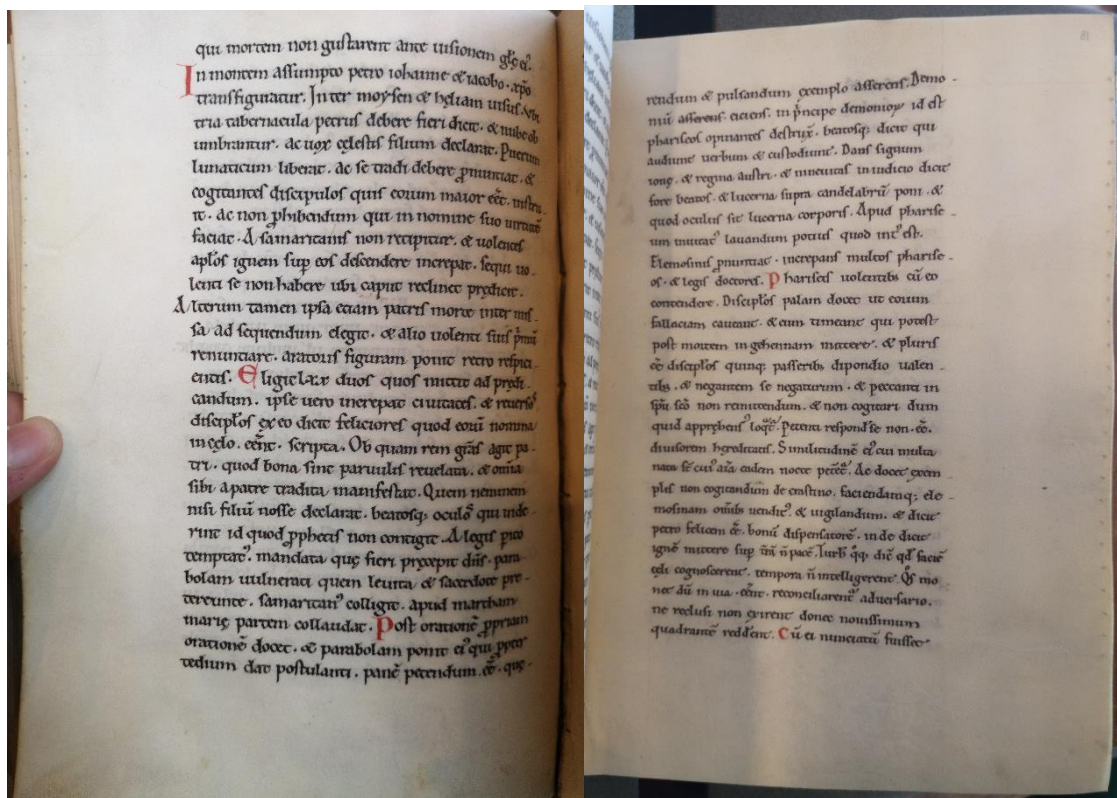 qui mortem non gustarent ante uisionem glę ei.
In montem assumpto petro iohanne & iacobo. xpo
transfiguratur. Inter moysen & heliam uisus. & ubi
tria tabernacula petrus debere fieri dicit. & nube ob
umbrantur. ac uox celestis filium declarat. Puerum
lunaticum liberat. ac se tradi debere pnuntiat. &
cogitantes discipulos quis eorum maior eēt. instru-
it. ac non phibendum qui in nomine suo uirtutē
faciat. A samaritanis non recipitur. & uolentes
aplos ignem sup eos descendere increpat. sequi uo-
lenti se non habere ubi caput reclinet prędicit.
Alterum tamen ipsa etiam patris morte inter mis-
sa ad sequendum elegit. & alio uolenti suis pmū
renuntiare. aratoris figuram ponit retro respici-
entis. Eligit lxx duos quos mittit ad prędi-
candum. ipse uero increpat ciuitates. & reuersos
discipłos ex eo dicit feliciores quod eorū nomina
in cęlo. eēnt. scripta. Ob quam rem grās agit pa-
tri. quod bona sint paruulis reuelata. & omīa
sibi a patre tradita manifestat. Quem neminem
nisi filiū nosse declarat. beatosq; oculos qui uide-
rint id quod pphetis non contigit. A legis pito
temptat'. mandata quę fieri pręcepit dns. para-
bolam uulnerati quem leuita & sacerdote pre-
tereunte. samaritan' colligit. apud martham
marię partem collaudat. Post orationē ppriam
orationē docet. & parabolam ponit ei' qui ppter
tedium dat postulanti. panē petendum. ēē. quę-
81
rendum & pulsandum exemplo asserens. Demo-
niū asserens. eiciens. in pncipe demonioꝝ id est
phariseos opinantes destrux̄. beatosq; dicit qui
audiunt uerbum & custodiunt. Dans signum
ionę. & regina austri. & nineuitas in iudicio dicit
fore beatos. & lucerna supra candelabrū poni. &
quod oculus sit lucerna corporis. Apud pharise-
um inuitat' lauandum potius quod int' est.
Elemosinis pnuntiat. increpans multos pharise-
os. & legis doctores. Phariseis uolentib; cū eo
contendere. Discipłos palam docet ut eorum
fallaciam caueant. & eum timeant qui potest
post mortem in gehennam mittere. & pluris
ēē discipłos quinq; passerib; dipondio ualen-
tib;. & negantem se negaturum. & peccanti in
spū scō non remittendum. & non cogitari dum
quid apprehens' loqt'. Petenti respondisse non. ēē.
diuisorem hereditatis. Similitudinē ei' cui multa
nata st̄ cui' aīa eadem nocte petet'. Ac docet exem
plis non cogitandum de crastino. faciendamq; ele-
mosinam omīb; uendit'. & uigilandum. & dicit
petro felicem ēē. bonū dispensatorē. inde dicit
ignē mittere sup trā n̄ pacē. Turb' qq; dic' qd' faciē
cęli cognoscerent. tempora n̄ intelligerent. Qs mo
net dū in uia. eēnt. reconciliarent' aduersario.
ne reclusi non exirent donec nouissimum
quadrantē redd'ent. Cū ei nunciatū fuisset